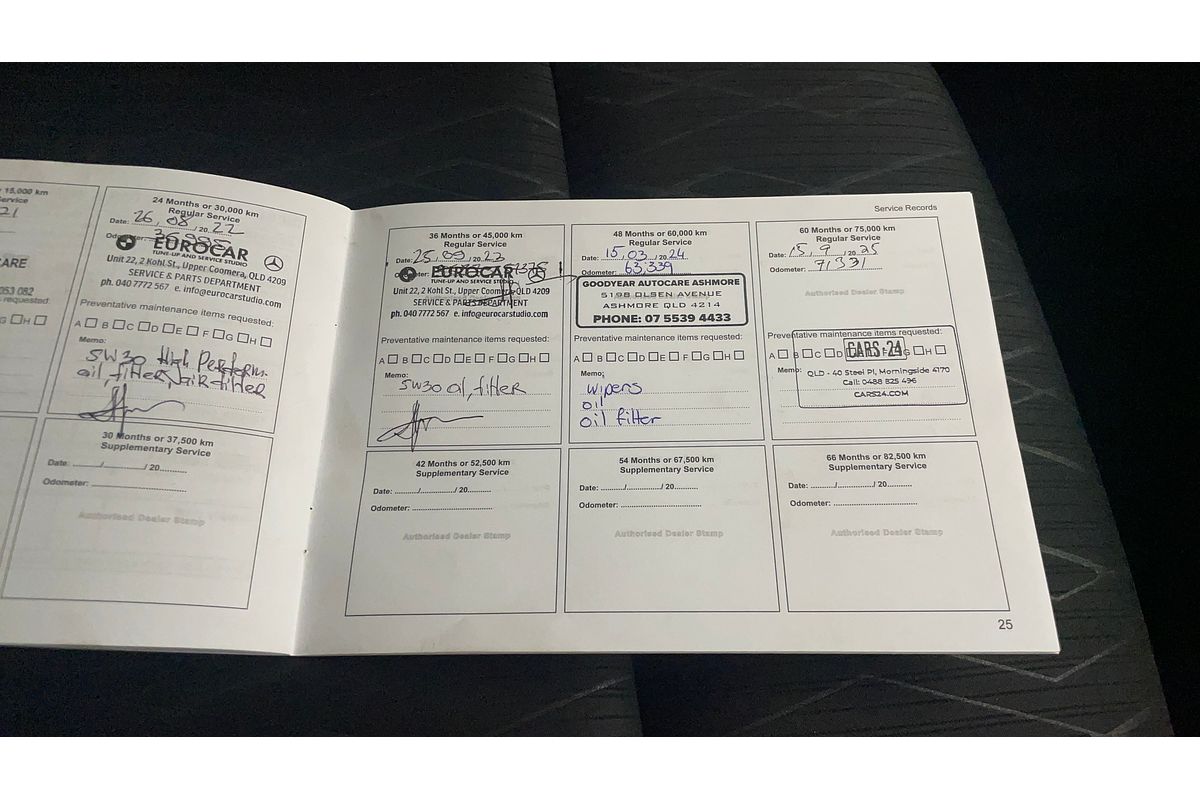 15,000 km
21
CARE
053 082
requested:
G H
24 Months or 30,000 km
Regular Service
Date: 26, 08 / 20 22
EUROCAR
TUNE-UP AND SERVICE STUDIO
Unit 22, 2 Kohl St., Upper Coomera, QLD 4209
SERVICE & PARTS DEPARTMENT
ph. 040 7772 567 e. info@eurocarstudio.com
Preventative maintenance items requested:
A B C D E F G H
Memo:
5W30 High Perform.
oil, filter, air filter
30 Months or 37,500 km
Supplementary Service
Date: ......../............/ 20............
Odometer: ......................................
Authorised Dealer Stamp
Service Records
36 Months or 45,000 km
Regular Service
Date: 25, 09 / 20 23
EUROCAR
TUNE-UP AND SERVICE STUDIO
Unit 22, 2 Kohl St., Upper Coomera, QLD 4209
SERVICE & PARTS DEPARTMENT
ph. 040 7772 567 e. info@eurocarstudio.com
Preventative maintenance items requested:
A B C D E F G H
Memo:
5W30 oil, filter
48 Months or 60,000 km
Regular Service
Date: 15, 03 / 20 24
Odometer: 63,339
GOODYEAR AUTOCARE ASHMORE
5198 OLSEN AVENUE
ASHMORE QLD 4214
PHONE: 07 5539 4433
Preventative maintenance items requested:
A B C D E F G H
Memo:
wipers
oil
oil filter
60 Months or 75,000 km
Regular Service
Date: 15, 9 / 20 25
Odometer: 71331
Authorised Dealer Stamp
Preventative maintenance items requested:
A B C D E F G H
CARS-24
Memo: QLD - 40 Steel Pl, Morningside 4170
Call: 0488 825 496
CARS24.COM
42 Months or 52,500 km
Supplementary Service
Date: ........../............../ 20..........
Odometer: ......................................
Authorised Dealer Stamp
54 Months or 67,500 km
Supplementary Service
Date: ........../............../ 20..........
Odometer: ......................................
Authorised Dealer Stamp
66 Months or 82,500 km
Supplementary Service
Date: ........../............../ 20..........
Odometer: ......................................
Authorised Dealer Stamp
25